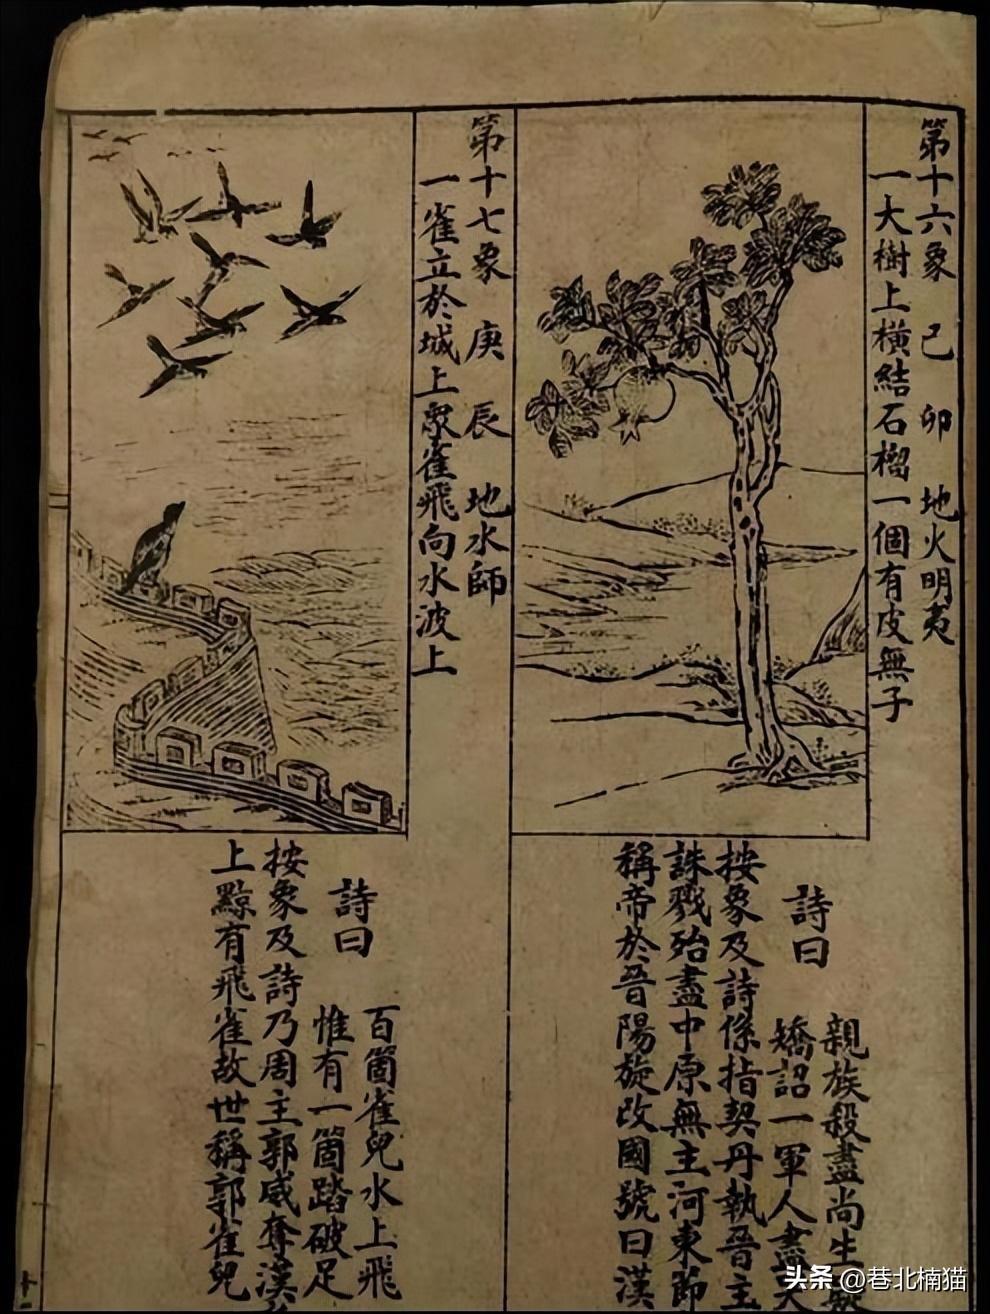 第十六象 己卯 地火明夷
一大樹上橫結石榴一個有皮無子
詩曰
親族殺盡尚生
矯詔一軍人盡
按象及詩係指契丹執晉主
誅戮殆盡中原無主河東節
稱帝於晉陽旋改國號曰漢
第十七象 庚辰 地水師
一雀立於城上眾雀飛向水波上
詩曰
百箇雀兒水上飛
惟有一箇踏破足
按象及詩乃周主郭威奪漢
上黥有飛雀故世稱郭雀兒
十
头条 @巷北楠猫